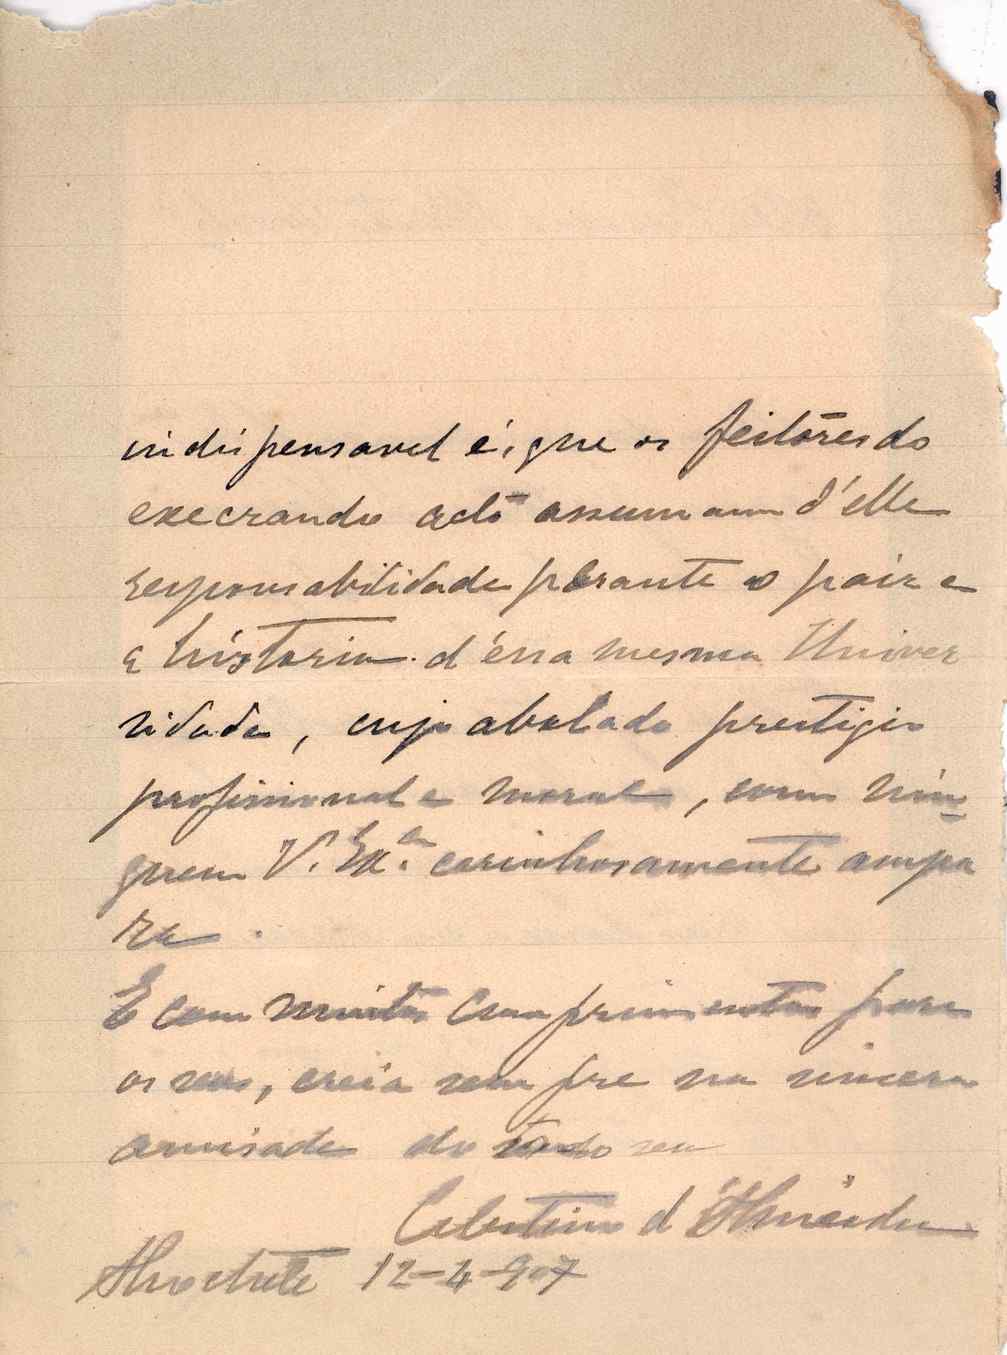 indispensavel é, que os feitores do
execrando acto assumam d'elle
responsabilidade perante o paiz e
a historia d'essa mesma Univer
sidade, cujo abalado prestigio
profissional e moral, com nin-
guem V. Ex.cia carinhosamente ampa
ra.
E com muitos cumprimentos para
os seus, creia sempre na sincera
amisade do todo seu
Celestino d'Almeida
Alcochete 12-4-907